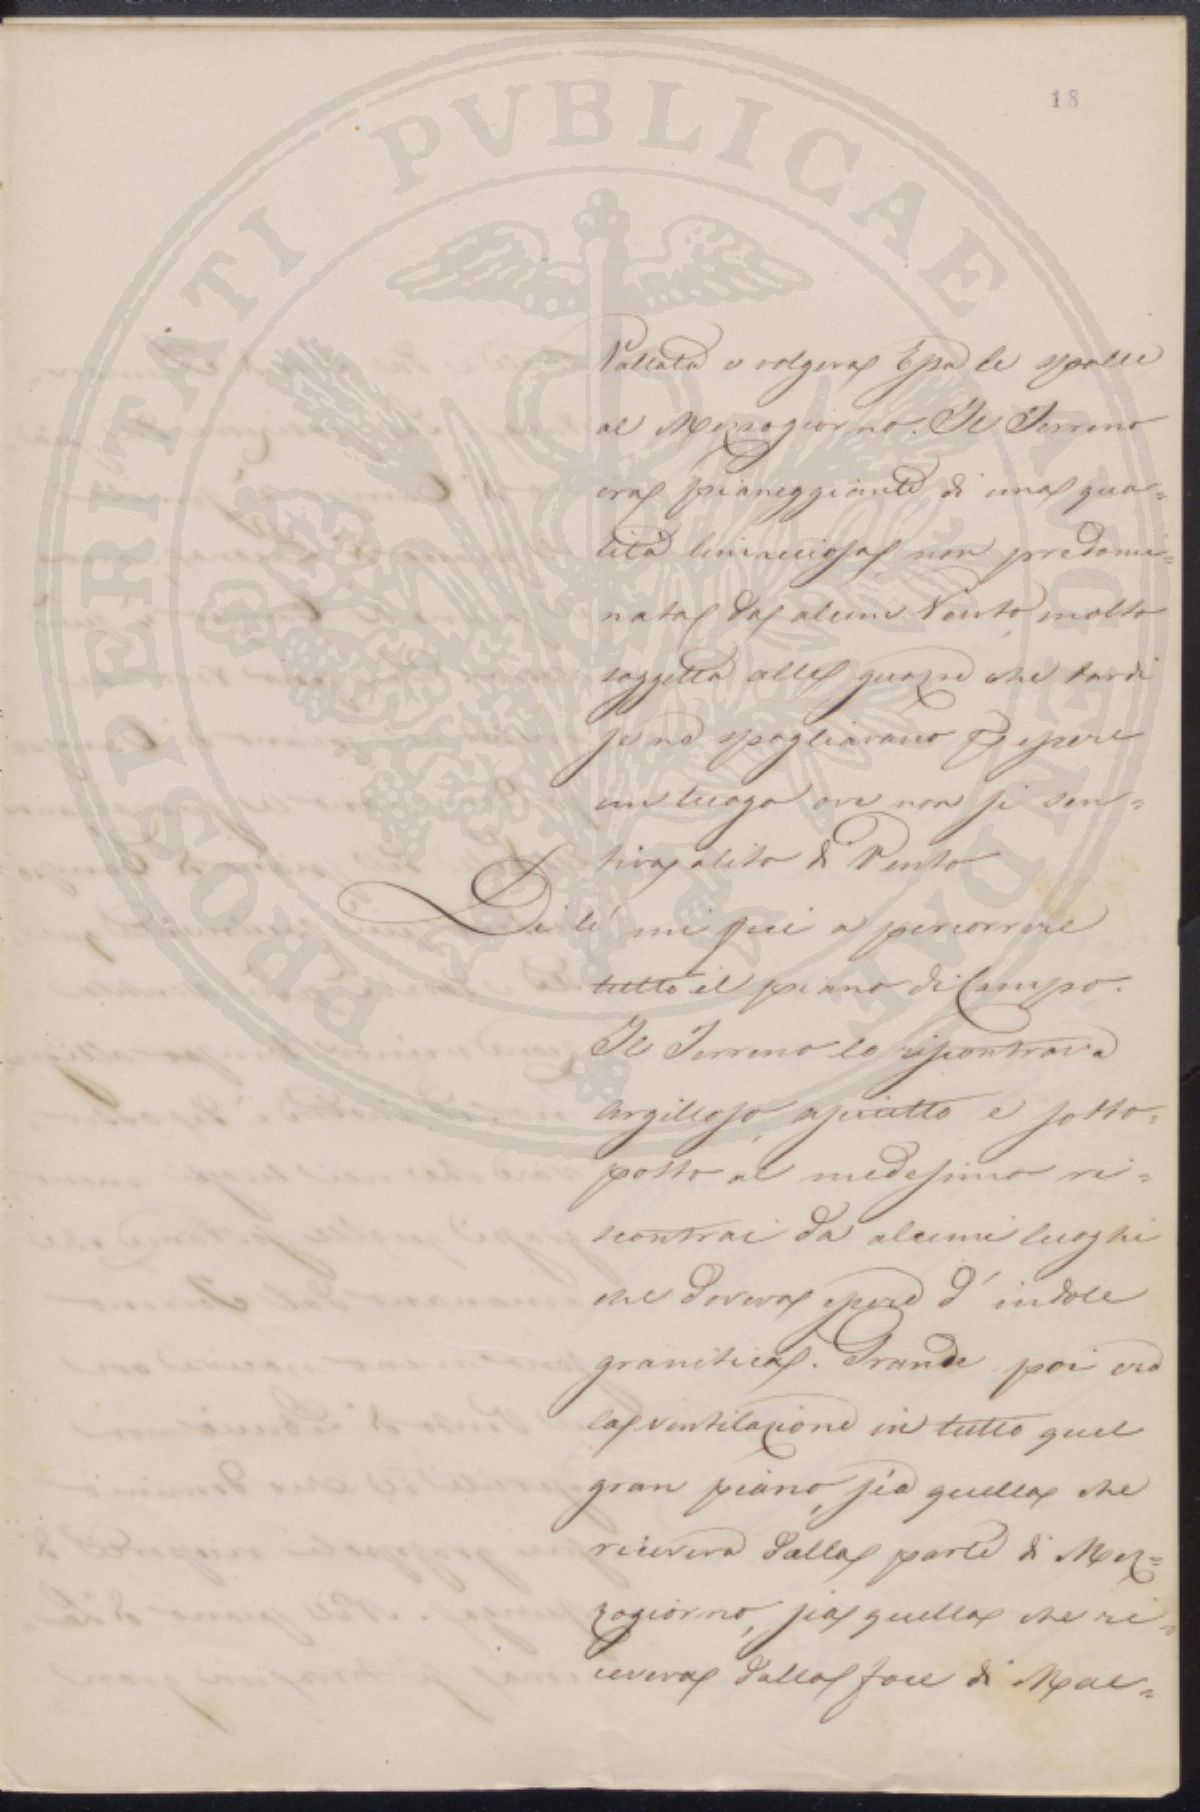 18
PROSPERITATI PVBLICAE AVGENDAE
Vallata e volgeva Essa le spalle
al Mezzogiorno. Il Terreno
era pianeggiante di una qua=
lità limacciosa, non predomi=
nata da alcun Vento, molto
soggetta alle guazze che tardi
se ne spogliavano per essere
un luogo ove non si sen=
tiva alito di Vento
Di lì mi feci a percorrere
tutto il piano di Campo.
Il Terreno lo riscontrava
Argilloso, asciutto e sotto=
posto al medesimo ri=
scontrai da alcuni luoghi
che doveva essere d' indole
granitica. Grande poi era
la ventilazione in tutto quel
gran piano, sia quella che
riceveva dalla parte di Mez=
zogiorno, sia quella che ri=
ceveva dalla foce di Mal=